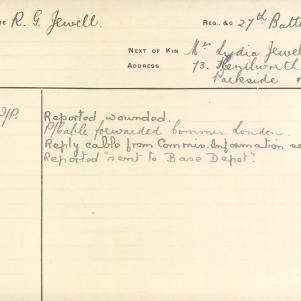 R. G. Jewell. REG. &C 27th Batt
NEXT OF KIN Mrs Lydia Jewel
ADDRESS 73. Kenilworth
Parkside
Reported wounded.
P/Cable forwarded Commis. London.
Reply cable from Commis. Information se
Reported "sent to Base Depot".